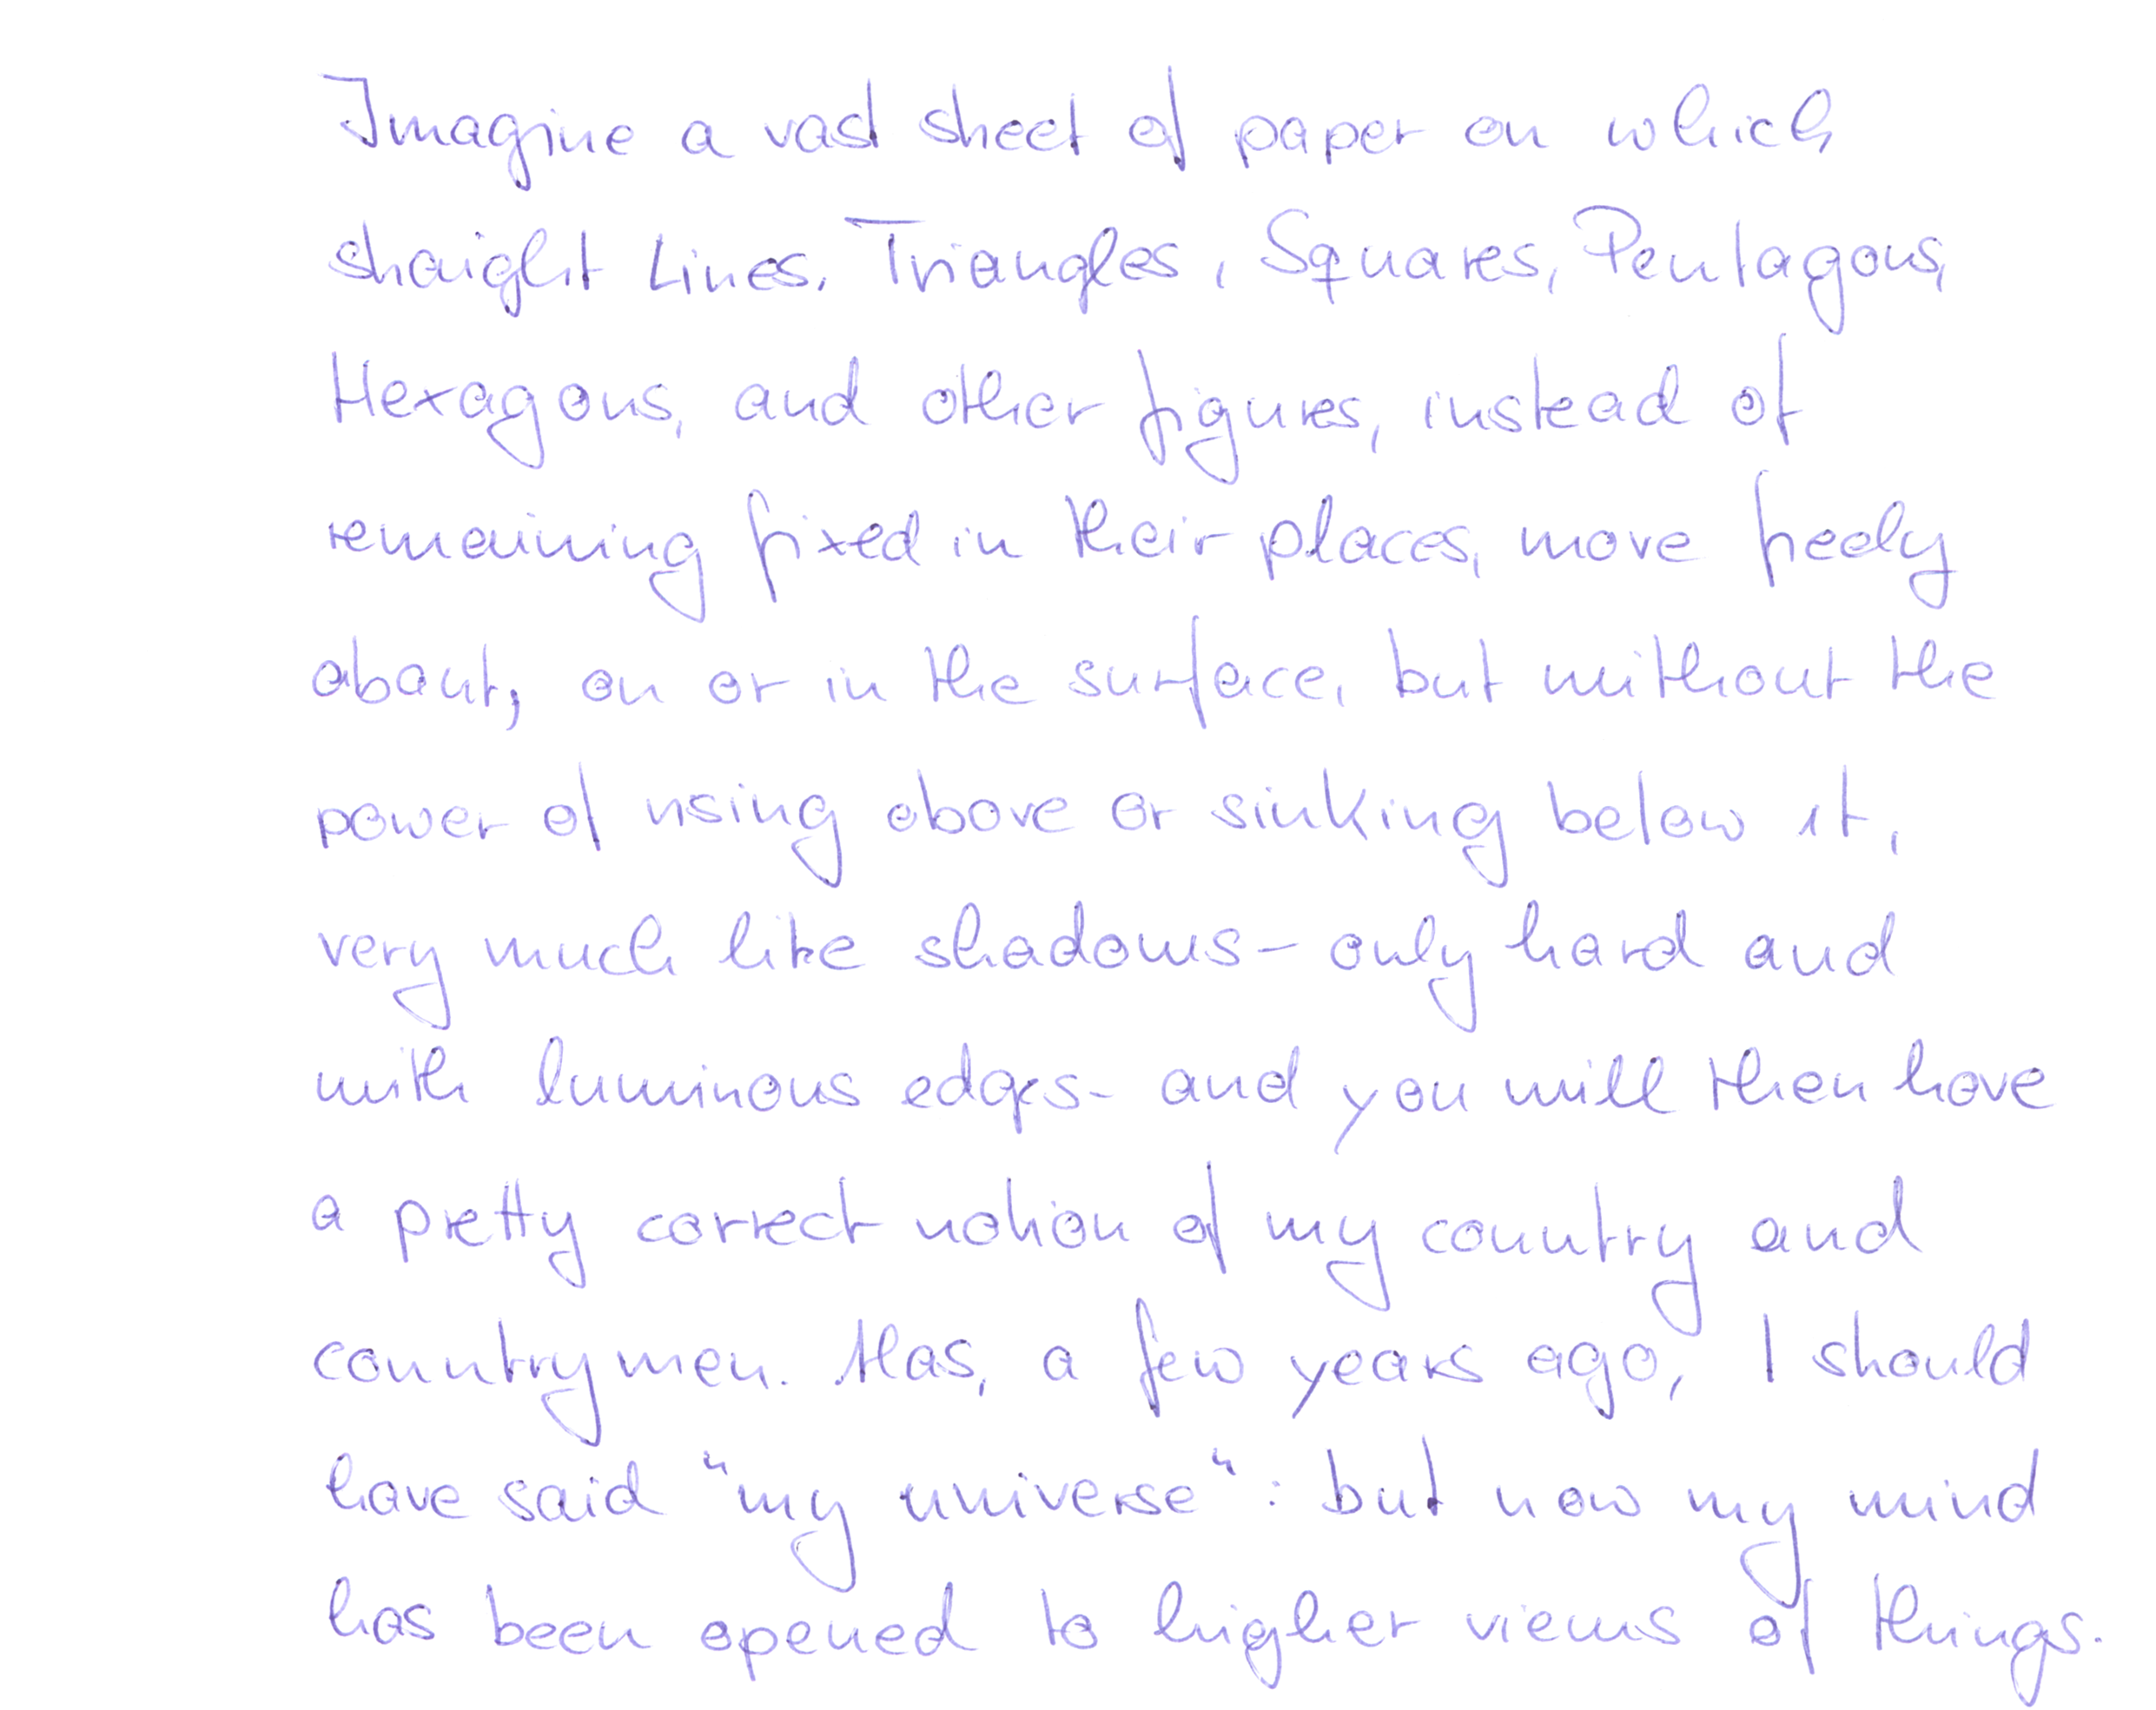 Imagine a vast sheet of paper on which
straight Lines, Triangles, Squares, Pentagons,
Hexagons, and other figures, instead of
remaining fixed in their places, move freely
about, on or in the surface, but without the
power of rising above or sinking below it,
very much like shadows - only hard and
with luminous edges - and you will then have
a pretty correct notion of my country and
countrymen. Alas, a few years ago, I should
have said "my universe": but now my mind
has been opened to higher views of things.